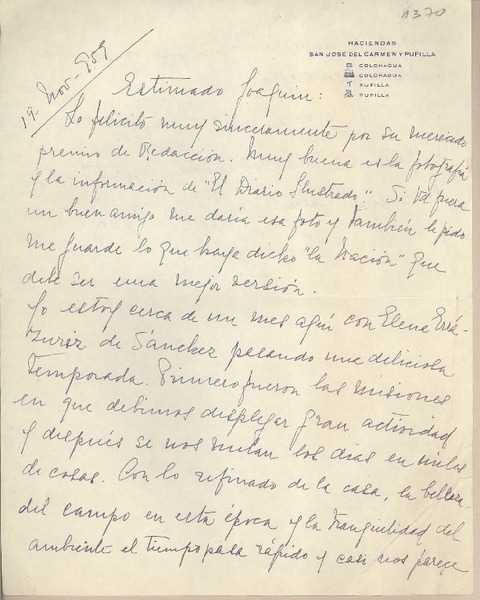 1370
HACIENDAS
SAN JOSE DEL CARMEN Y PUPILLA
COLCHAGUA
COLCHAGUA
PUPILLA
PUPILLA
19. Nov-959
Estimado Joaquin:
Lo felicito muy sinceramente por su merecido
premio de Redacción. Muy buena es la fotografía
y la información de "El Diario Ilustrado". Si Ud fuera
un buen amigo me daría esa foto y también le pido
me guarde lo que haya dicho "la Nación" que
debe ser una mejor versión.
Yo estoy cerca de un mes aquí con Elena Errá-
zuriz de Sánchez pasando una deliciosa
temporada. Primero fueron las misiones
en que debimos desplegar gran actividad
y después se nos vuelan los días en miles
de cosas. Con lo refinado de la casa, la belleza
del campo en esta época y la tranquilidad del
ambiente el tiempo pasa rápido y casi nos parece